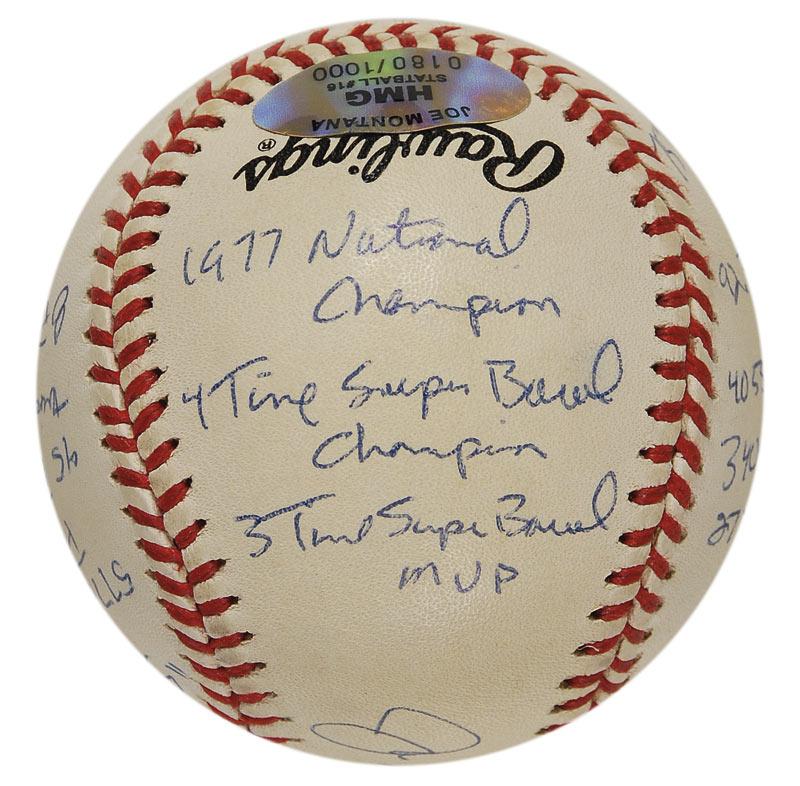 JOE MONTANA
HMG
STATBALL #16
0180/1000
Rawlings®
1977 National
Champion
4 Time Super Bowl
Champion
3 Time Super Bowl
MVP
4055
340
27